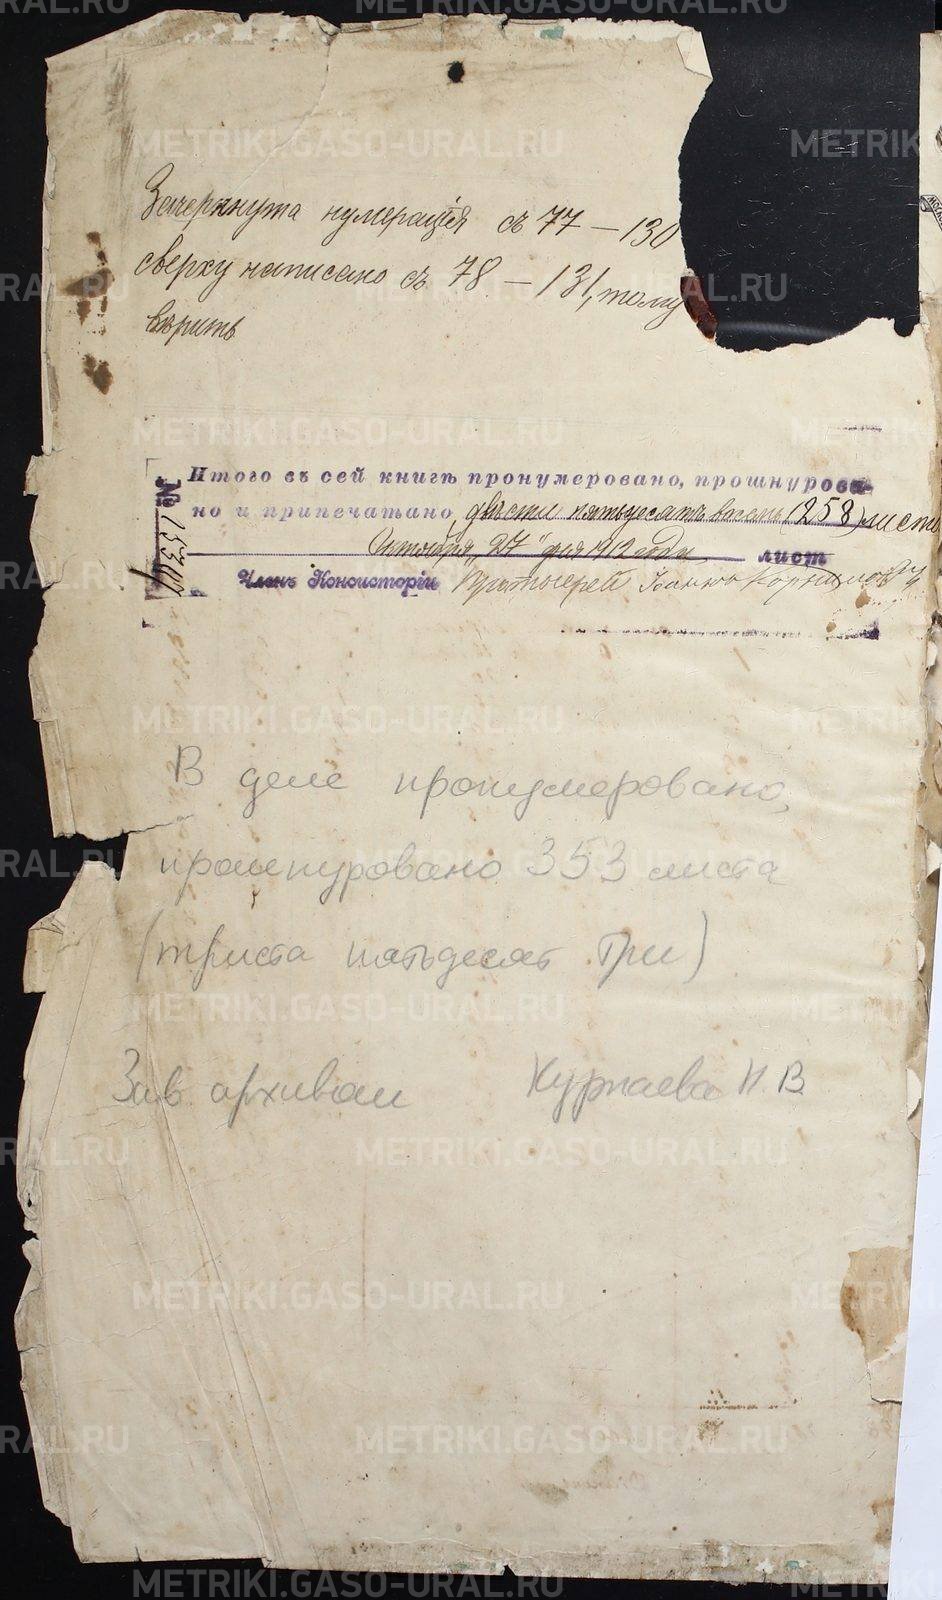 Зачеркнута нумерація съ 77 – 130
сверху написано съ 78 – 131, тому
вѣрить
Итого въ сей книгѣ пронумеровано, прошнурова
но и припечатано двѣсти пятьдесятъ восемь (258) листовъ
Октября „27" дня 1912 года лист
Членъ Консисторіи Протоіерей Іоаннъ
№
В деле пронумеровано,
прошнуровано 353 листа
(триста пятьдесят три)
Зав. архивом Курпаева Н. В
METRIKI.GASO-URAL.RU